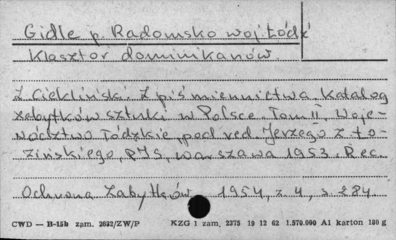 Gidle p. Radomsko woj. Łódź
Klasztor dominikanów.
Z. Ciekliński. Z piśmiennictwa. Katalog
zabytków sztuki w Polsce. Tom II, Woje-
wództwo Łódzkie, pod red. Jerzego Z. Ło-
zińskiego, PIS, Warszawa 1953. Rec.
Ochrona Zabytków 1954, z 4, s. 284.
CWD — B-15b zam. 2632/ZW/P KZG 1 zam. 2375 19 12 62 1.570.000 A1 karton 180 g